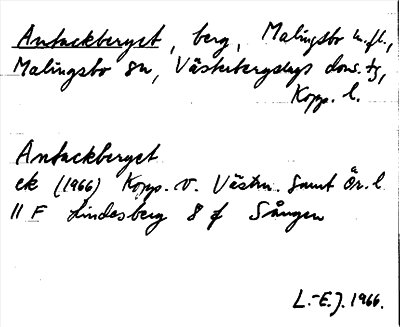 Antackberget, berg, Malingsbo k.fl.,
Malingsbo sn, Västerbergslags doms. tg,
Kopp. l.
Antackberget
ek (1966) Kopp. o. Västm. samt Ör. l.
11 F Lindesberg 8 f Sången
L.-E.J. 1966.